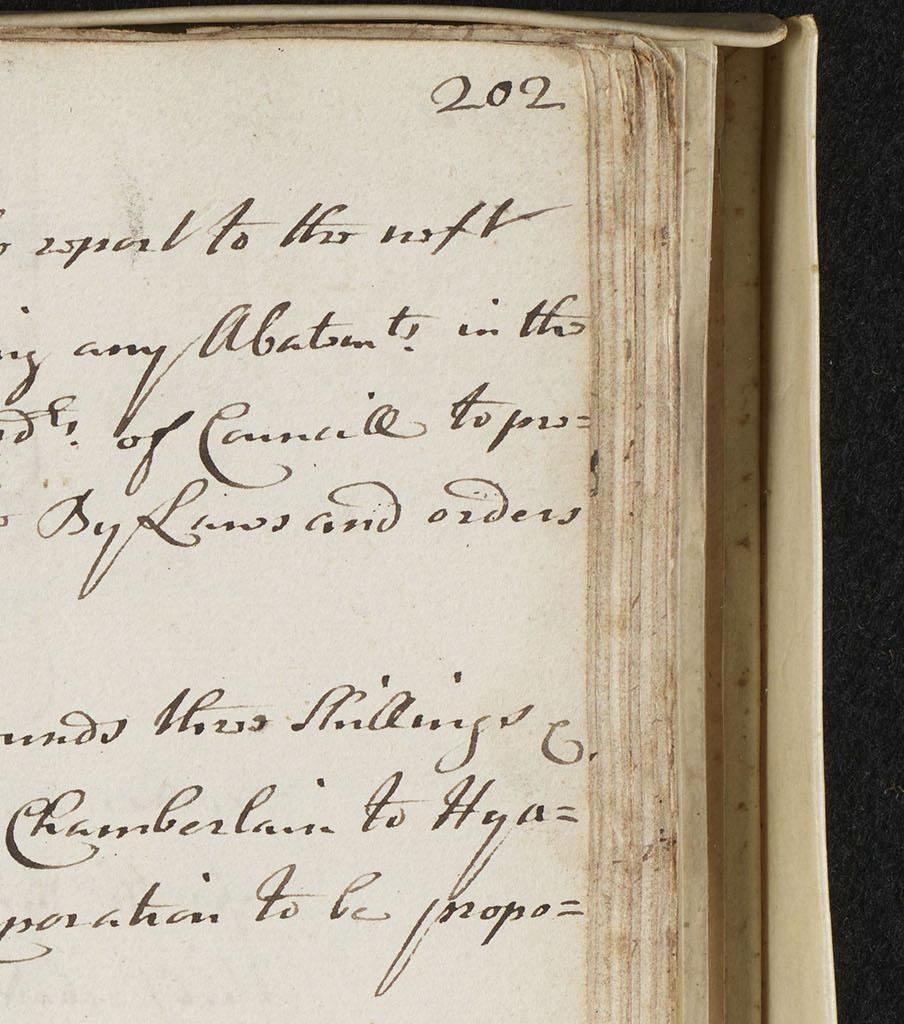 202
report to the next
any Abatemts. in the
of Councill to pro=
By Laws and orders
unds three Shillings &.
Chamberlain to Hya=
poration to be propo=